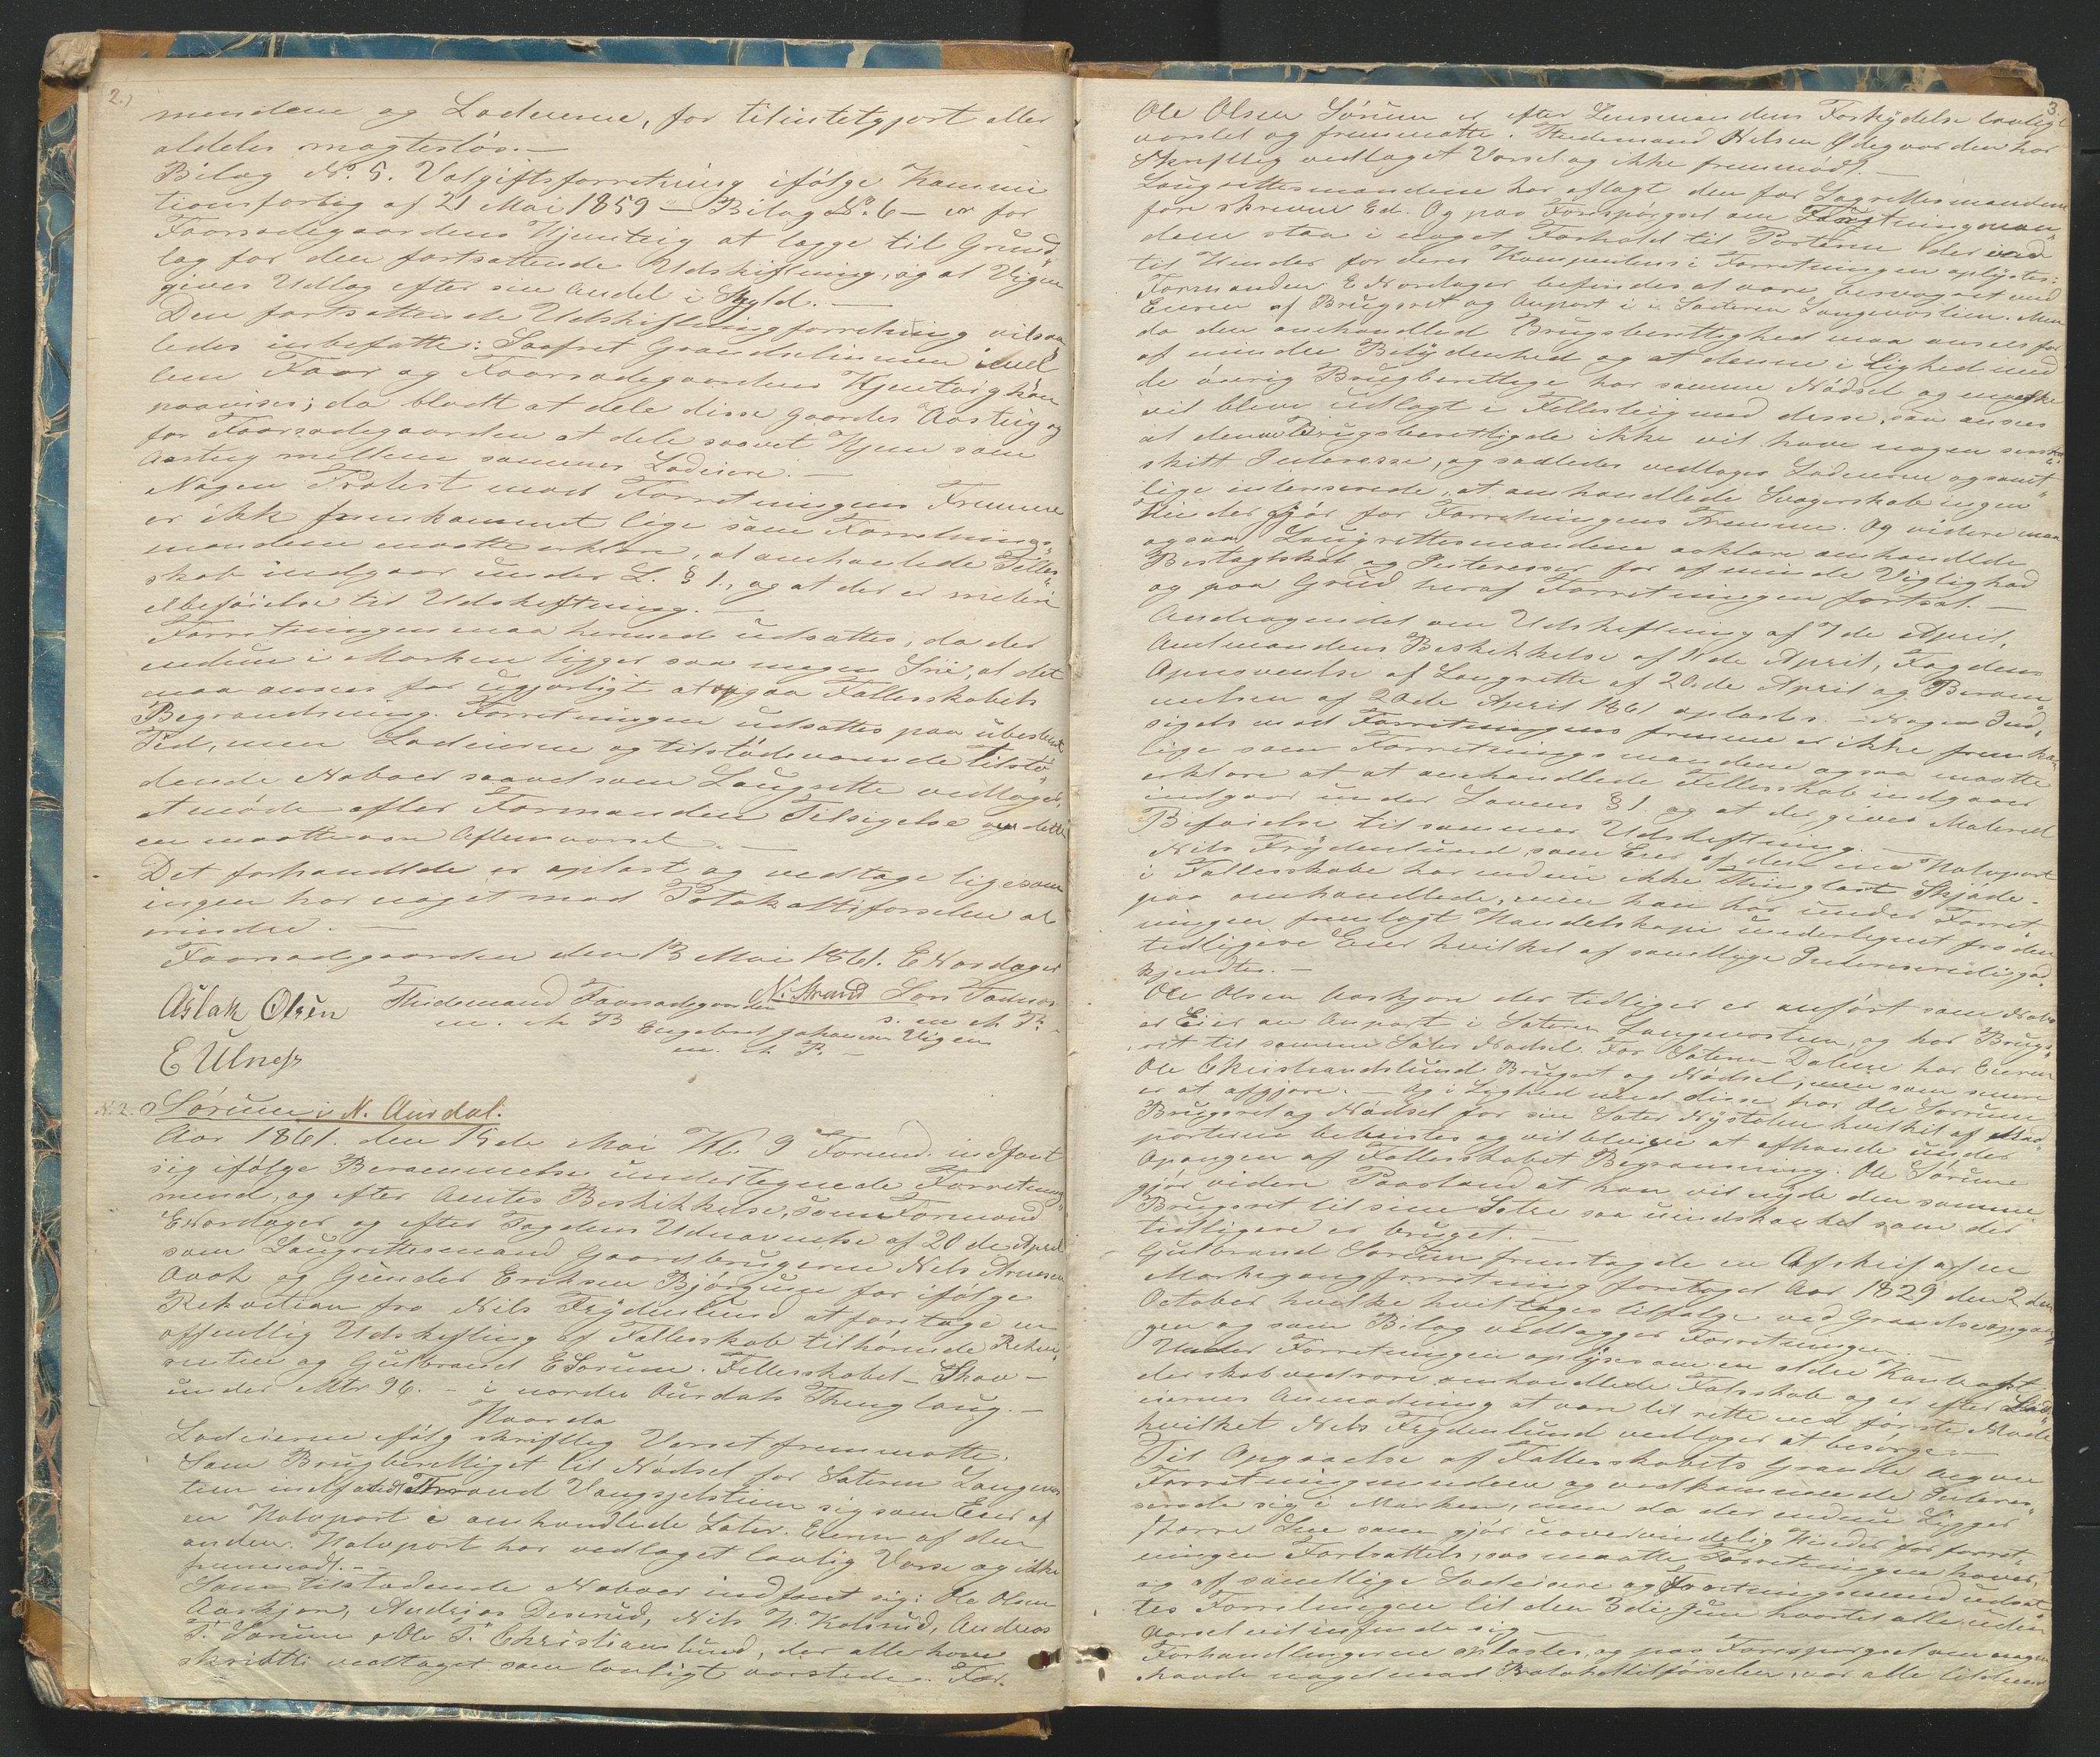 2.)
mendene og Lodeierne, for tilintetgjort eller
aldeles magtesløs. —
Bilag No. 5. Valgiftsforretning ifølge Kommi
tionsfortag af 21 Mai 1859 — Bilag No. 6 — er for
Faarsadegaardens Hjemteig at lægge til Grund„
lag for den fortsattende Udskiftning, og at Vigen
gives Udlag efter sin Andel i Skyld. —
Den fortsattende Udskiftningforretning vil saa
ledes indbefatte: Saafret Grændselinien imel
lem Faar og Faarsadegaardens Hjemteig kan
paavises; da blodt at dele disse Gaardes Aasteig og
for Faarsadegaarden at dele saavel Hjem som
Aasteig mellem sammes Lodeiere. —
Nogen Protest mod Forretningens Fremme
er ikk fremkommet lige som Forretnings„
mændene maatte erklære, at omhanlede Felles„
skab indgaar under L. § 1., og at der er meteri
el beføielse til Udskiftning. —
Forretningen maa hermed udsattes, da der
endnu i Marken ligger saa megen Snee, at det
maa ansees for ugjørligt at opgaa Fallesskabets
Begrændsning. Forretningen udsattes paa ubestemt
Tid, men Lodeierne og tilstødevarende tilstø„
dende Naboer saavel som Laugrette vedtager,
at møde efter Formandens Tilsigelse om dette
en maatte vor Aftens varsel. —
Det forhandlede er oplæst og vedtage ligesom
ingen har noget mod Potokoltilførselen at
erindre. —
Faarsadegaarden den 13 Mai 1861. E Nordager
Aslak Olsen Thidemand Faarsadegaarden N. Strand Lars
m. M P. Engebret Johannesen Vigen s. m M P.
m. M P. —
E Ulnes
N. 2. Sørum i N. Aurdal.
Aar 1861. den 15de Mai Kl. 9 Formd. indfant
sig ifølge Berammelse undertegnede Forretnings„
mænd, og efter Amtets Beskikkelse, som Formand
E Nordager og efter Fogdens Udnævnelse af 20de April
som Laugrettesmænd Gaardbrugerne Nels Arnesen
og Gunder Eriksen Bjørgum for ifølge
Rekvition fra Nils Frydenlund at foretage en
offentlig Udskiftling af Fallesskab tilhørende Rekvi„
renten og Gulbrand E Sørum. Fellesskabet — Skov —
under Mtr 96. — i nordre Aurdals Thinglaug. —
Hvor da
Lodeierne ifølg skriftlig Varsel fremmøtte.
Som Brugberettiget til Nødsel for Sæteren Langevas
tien indfandt Trond Vangsjelstuen sig som Eier af
en Halvport i omhandlede Sæter. Eieren af den
anden Halvport har vedtaget lovlig Varse og ikke
fremmødt. —
Som tilstødende Naboer indfant sig: Ole Olsen
Aaskjøn, Andreas Deserud, Nils N. Kolsrud, Andreas
T. Sørum & Ole T. Christianslund, der alle have
skriftli vedtaget som lovligt varslede. For.
3
Ole Olsen Sørum er efter Lensmandens Forkydelse lovligt
varslet og fremmøtte. Thidemand Nelsen Ødegaarden har
skriftlig vedtaget Varsel og ikke fremmødt. —
Laugrettesmændene har aflagt den for Lagrettesmændene
fore skrevne Ed. Og paa Forespørgsel om Forretningmæn„
dene staa i noget Forhold til Parterne der ved
til Hinder for deres Kompentense i Forretningen oplystes:
Formanden E Nordager befindes at være besvogret med
Eieren af Brugsret og Anport i i Sæteren Langevastien. Men
da den omhandlede Brugsberettighed maa ansees for
af mindre Betydenhed og at denne i Lighed med
de øvrig Brugberettige har samme Nødsel og maaske
vil blive udlagt i Fellesteig med disse, saa ansees
at denne Brugsberettigede ikke vil have nogen særski„
skilt Interesse, og saaledes vedtages Lodeierne og samt„
lige interserede, at omhandlede Svogerskab ingen
Hinder gjør for Forretningens Fremme. Og videre maa
ogsaa Laugrettesmændene erklære omhandlede
og Interesser for af minde Vigtighed
og paa Grund heraf Forretningen fortsat. —
Andragendet om Udskiftling af 7de April,
Amtmandens Beskikkelse af 11de April, Fogdens
Opnævnelse af Laugrette af 20de April og Beram„
melsen af 20de April 1861 oplæstes. — Nogen Ind„
sigels mod Forretningens fremme er ikke fremkom
lige som Forretnings mændene ogsaa maatte
erklære at at omhandlede Fellesskab indgaar
indgaar under Lovens § 1 og at der gives Materiel
Biføielse til sammes Udskiftning. —
Nils Frydenlund som Eier af den ene Halvport
i Fallesskabe har endnu ikke Thinglæst Skjøde
paa omhandlede, men han har under Forret„
ningen fremlagt Handelskopi undertegnet fra den
tidligere Eier hvilket af samtlige Intereserede god„
kjendtes. —
Ole Olsen Aaskjøn der tidliger er anført som Nabo
er Eier av Anport i Sæteren Langevastien, og har Brugs„
ret til samme Sæter Nødsel. For Sæteren Dalene har Eieren
Ole Christianslund Brugret og Nødsel; men som senere
er at afgjøre. — Og i Lighed med disse har Ole Sørum
Brugsret og Nødsel for sin Sæter Nystølen hvilket af Mod„
parterne at afhande under
Opgangen af Fallesskabet Begrænsning. Ole Sørum
gjør videre Paastand at han vil nyde den samme
Brugsret til sine Setre saa uindskænket som der
tidligere er bruget. —
Gulbrand Sørum fremlagde en Afskrif af en
Markegangforretning foretaget Aar 1829 den 2den
October hvilke hvil tages tilfølge ved Grændseopgan„
gen og som Bilag vedlægges Forretningen. —
Under Forretningen oplyses om en eldre Kontrakt
der skal vedrøre omhandlede Falsskab og er efter Lod„
eiernes Anmodning at være til rette ved første Møde
hvilket Nels Frydenlund vedtager at besørge. —
Til Opgaaelse af Fallesskabets Grændse begav
Forretningmændene og vedkommende Interes„
serede sig i Marken, men da der endnu Ligger
større Snee som gjør uovervindelig Hinder for forret„
ningen Fortsattels, saa maatte Forretningen hæves,
og af samtlige Lodeiere og Forretningsmænd udsat„
tes Forretningen til den 3die Juni hvortil alle uden
varsel vil infinde sig —
Forhandlingerne oplæstes, og paa Forespørgsel om nogen
havde noget mod Protokoltilførselen, var alle tilstede